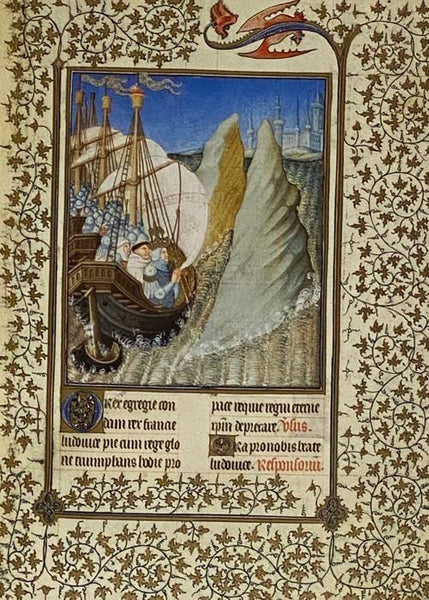 O rex egregie con
dam rex francie
ludouice pie cum rege glo
rie triumphans hodie pro
pace requie regni
xpm deprecare. Vsus.
Ora pro nobis beate
ludouice. Responsoriu.